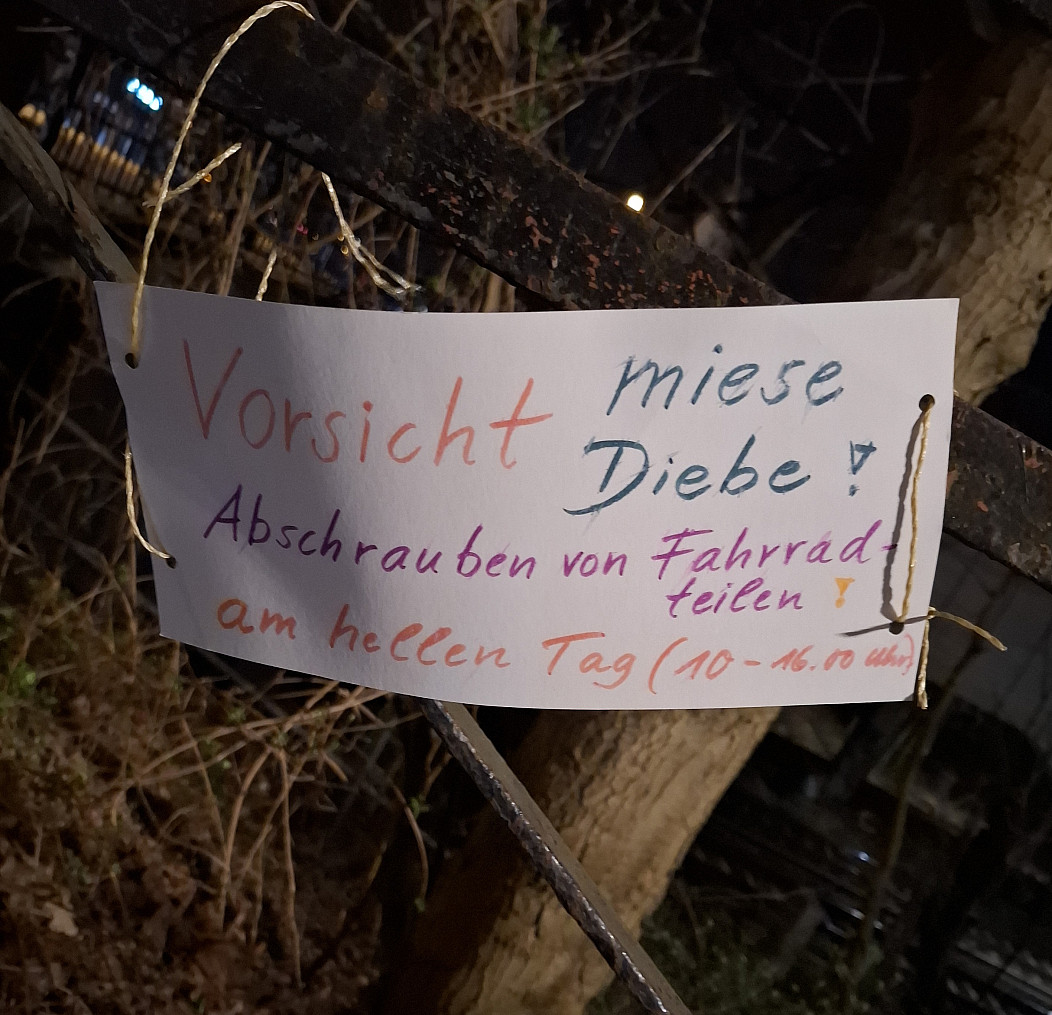 Vorsicht miese
Diebe!
Abschrauben von Fahrrad-
teilen!
am hellen Tag (10-16.00 Uhr)